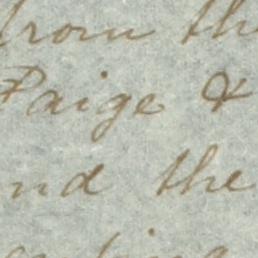 from th
Paige &
nd the